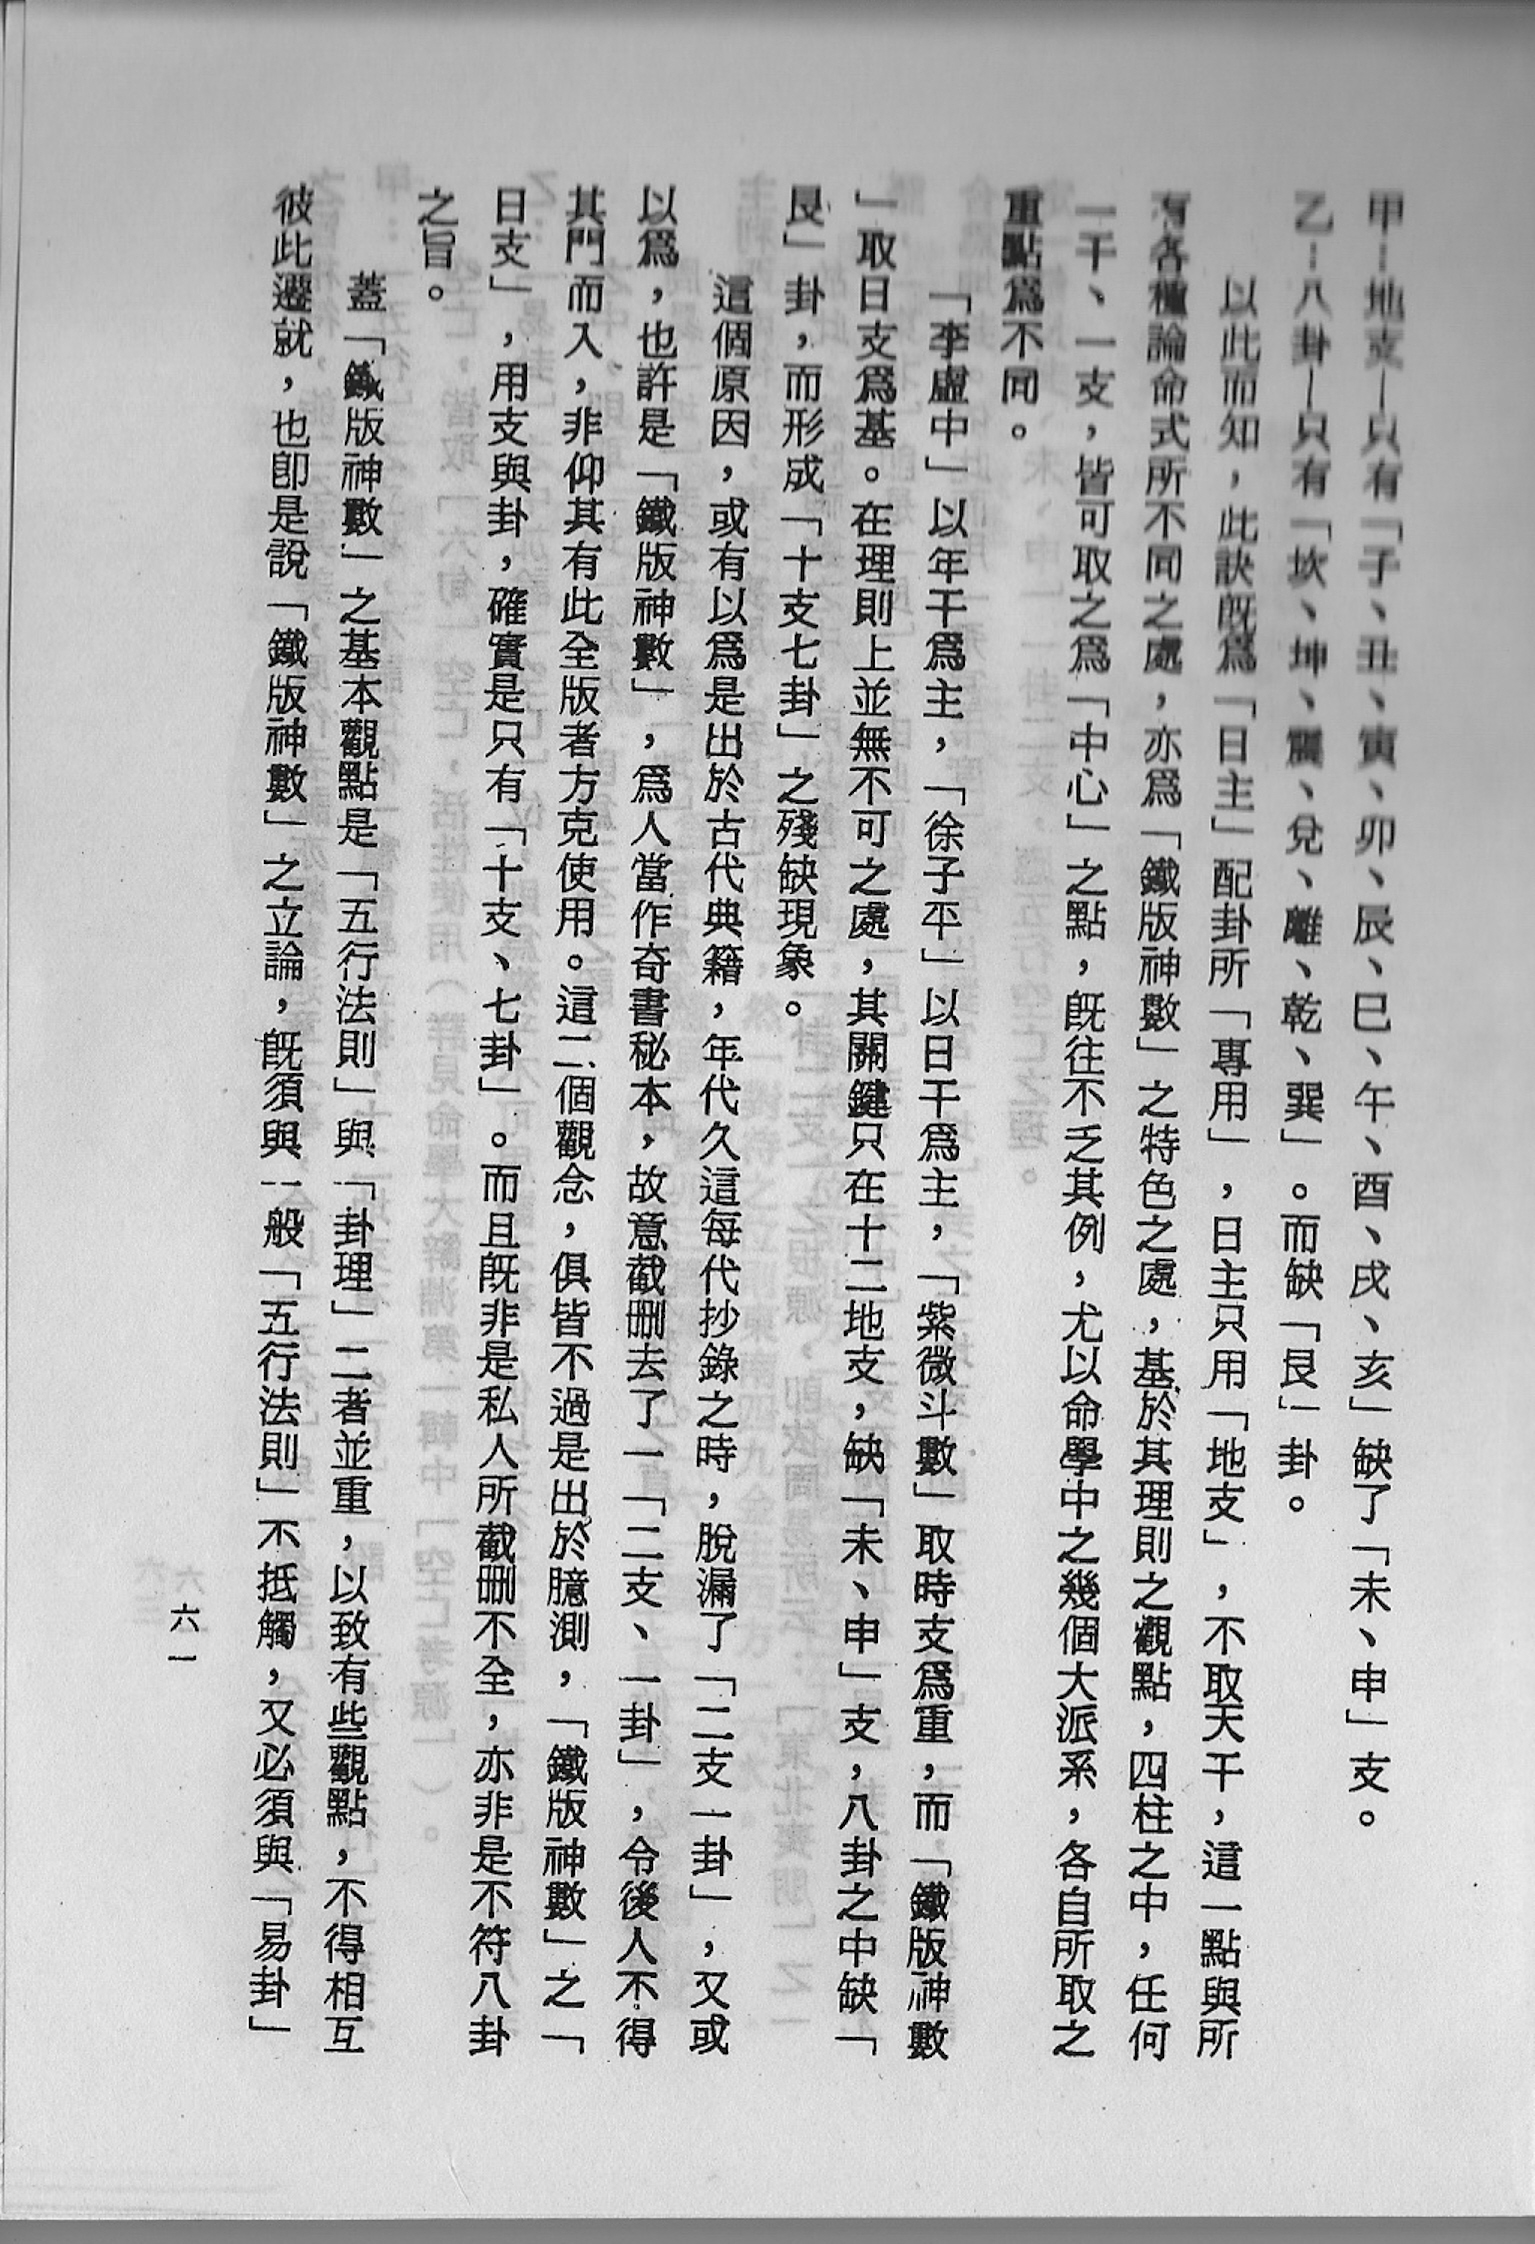 甲--地支—只有「子、丑、寅、卯、辰、巳、午、酉、戌、亥」缺了「未、申」支。
乙--八卦—只有「坎、坤、震、兌、離、乾、巽」。而缺「艮」卦。
以此而知，此訣既爲「日主」配卦所「專用」，日主只用「地支」，不取天干，這一點與所
有各種論命式所不同之處，亦爲「鐵版神數」之特色之處，基於其理則之觀點，四柱之中，任何
一干、一支，皆可取之爲「中心」之點，既往不乏其例，尤以命學中之幾個大派系，各自所取之
重點爲不同。
「李虛中」以年干爲主，「徐子平」以日干爲主，「紫微斗數」取時支爲重，而「鐵版神數
」取日支爲基。在理則上並無不可之處，其關鍵只在十二地支，缺「未、申」支，八卦之中缺「
艮」卦，而形成「十支七卦」之殘缺現象。
這個原因，或有以爲是出於古代典籍，年代久這每代抄錄之時，脫漏了「二支一卦」，又或
以爲，也許是「鐵版神數」，爲人當作奇書秘本，故意截刪去了一「二支、一卦」，令後人不得
其門而入，非仰其有此全版者方克使用。這二個觀念，俱皆不過是出於臆測，「鐵版神數」之「
日支」，用支與卦，確實是只有「十支、七卦」。而且既非是私人所截刪不全，亦非是不符八卦
之旨。
蓋「鐵版神數」之基本觀點是「五行法則」與「卦理」二者並重，以致有些觀點，不得相互
彼此遷就，也卽是說「鐵版神數」之立論，既須與一般「五行法則」不抵觸，又必須與「易卦」
六一